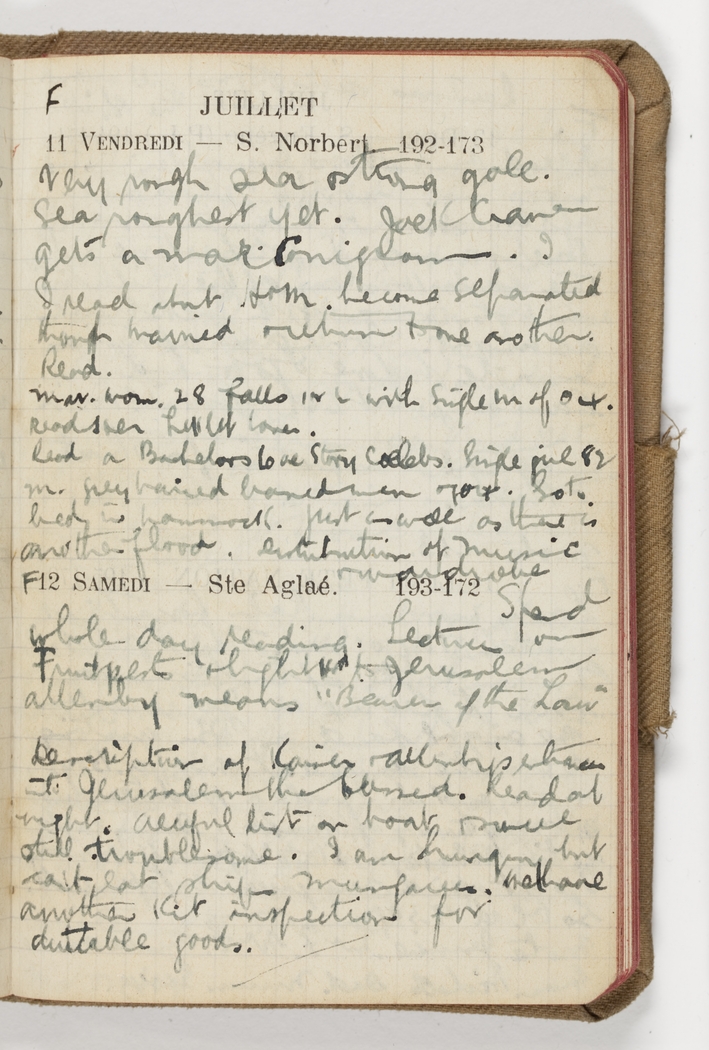 F
JUILLET
11 VENDREDI — S. Norbert. 192-173
Very rough sea strong gale.
Sea roughest yet. Jack
gets a
I read that H & M. become separated
though married return to one another.
Read.
Mar. wom. 28 falls in L with single m of 04.
reads her
Read a Bachelors Love Story Celebs. Single girl 82
m. grey haired man of 04. Both
in hammock. Just as well as there is
another flood. distribution of Music
F12 SAMEDI — Ste Aglaé. 193-172
Spend
whole day reading. Lecture on
Fruitpests & light to Jerusalem
allenby means "Bearer of the Law"
Description of Kaiser & allenbys
into Jerusalem the blessed. Read at
night. awful list on boat
still troublesome. I am hungry but
cant eat ships. We have
another Kit inspection for
goods.